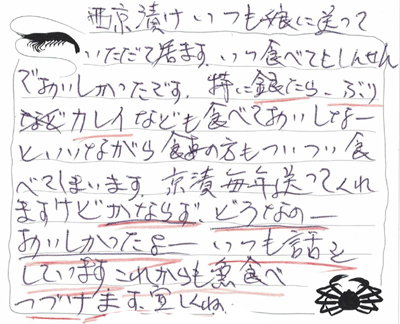 西京漬けいつも娘に送って
いただて居ます、いつ食べてもしんせん
でおいしかったです。特に銀たら、ぶり
などカレイなども食べておいしなー
といいながら食事の方もついつい食
べてしまいます、京漬毎年送ってくれ
ますけどかならず、どうなのー
おいしかったよー いつも話を
しています これからも魚食べ
つづけます、宜しくね、